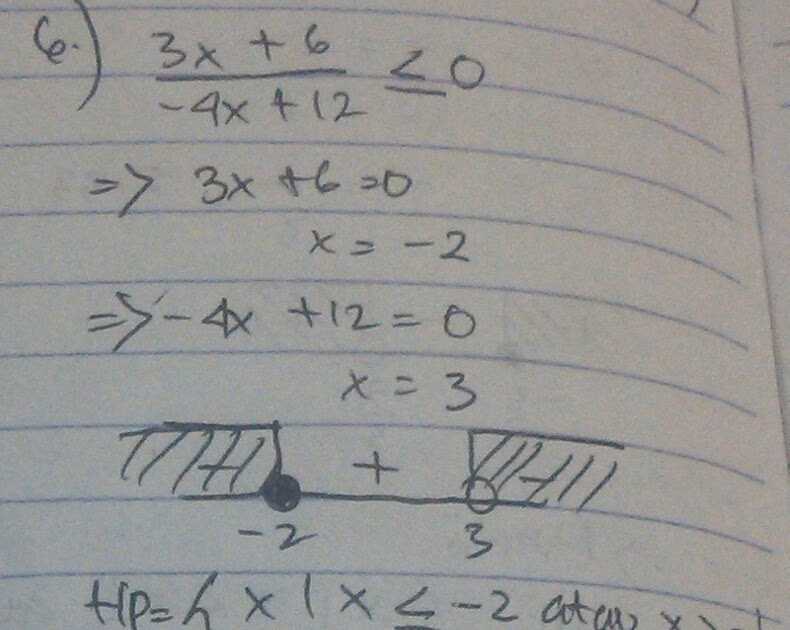 6.) (3x + 6)/(-4x + 12) ≤ 0
=> 3x + 6 = 0
x = -2
=> -4x + 12 = 0
x = 3
+
-2 3
Hp = { x | x ≤ -2 atau x >